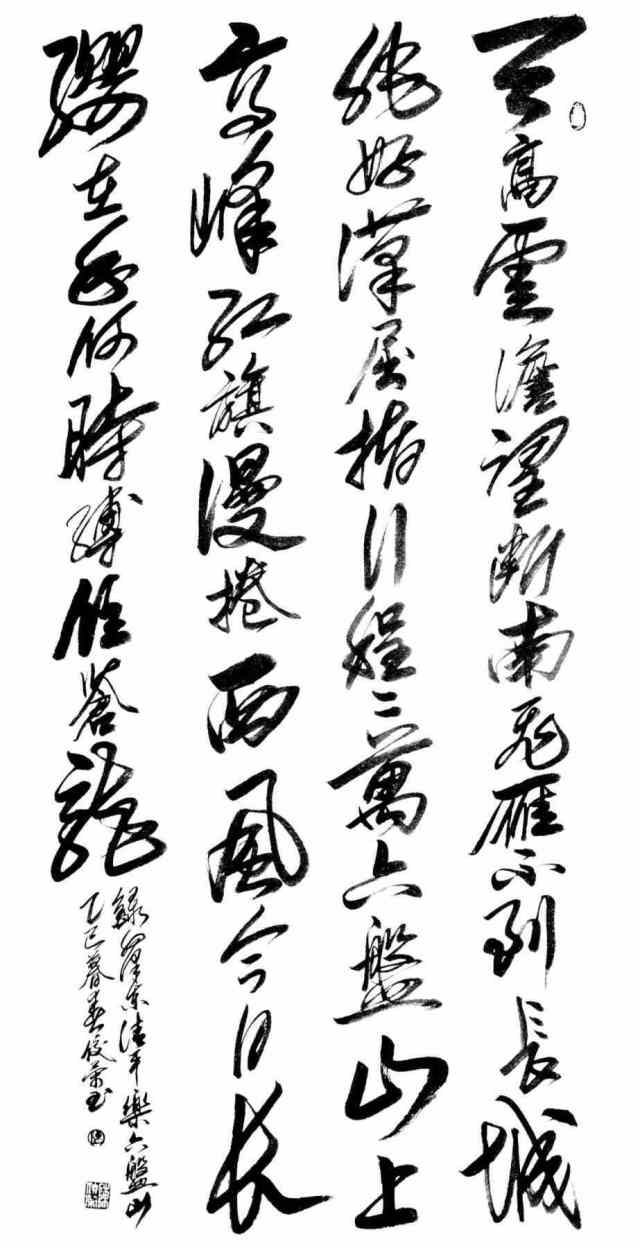 天高雲澹望斷南飛雁不到長城
非好漢屈指行程二萬六盤山上
高峰紅旗漫捲西風今日長
纓在手何時縛住蒼龍
錄毛澤東清平樂六盤山
乙巳暮春俊榮書